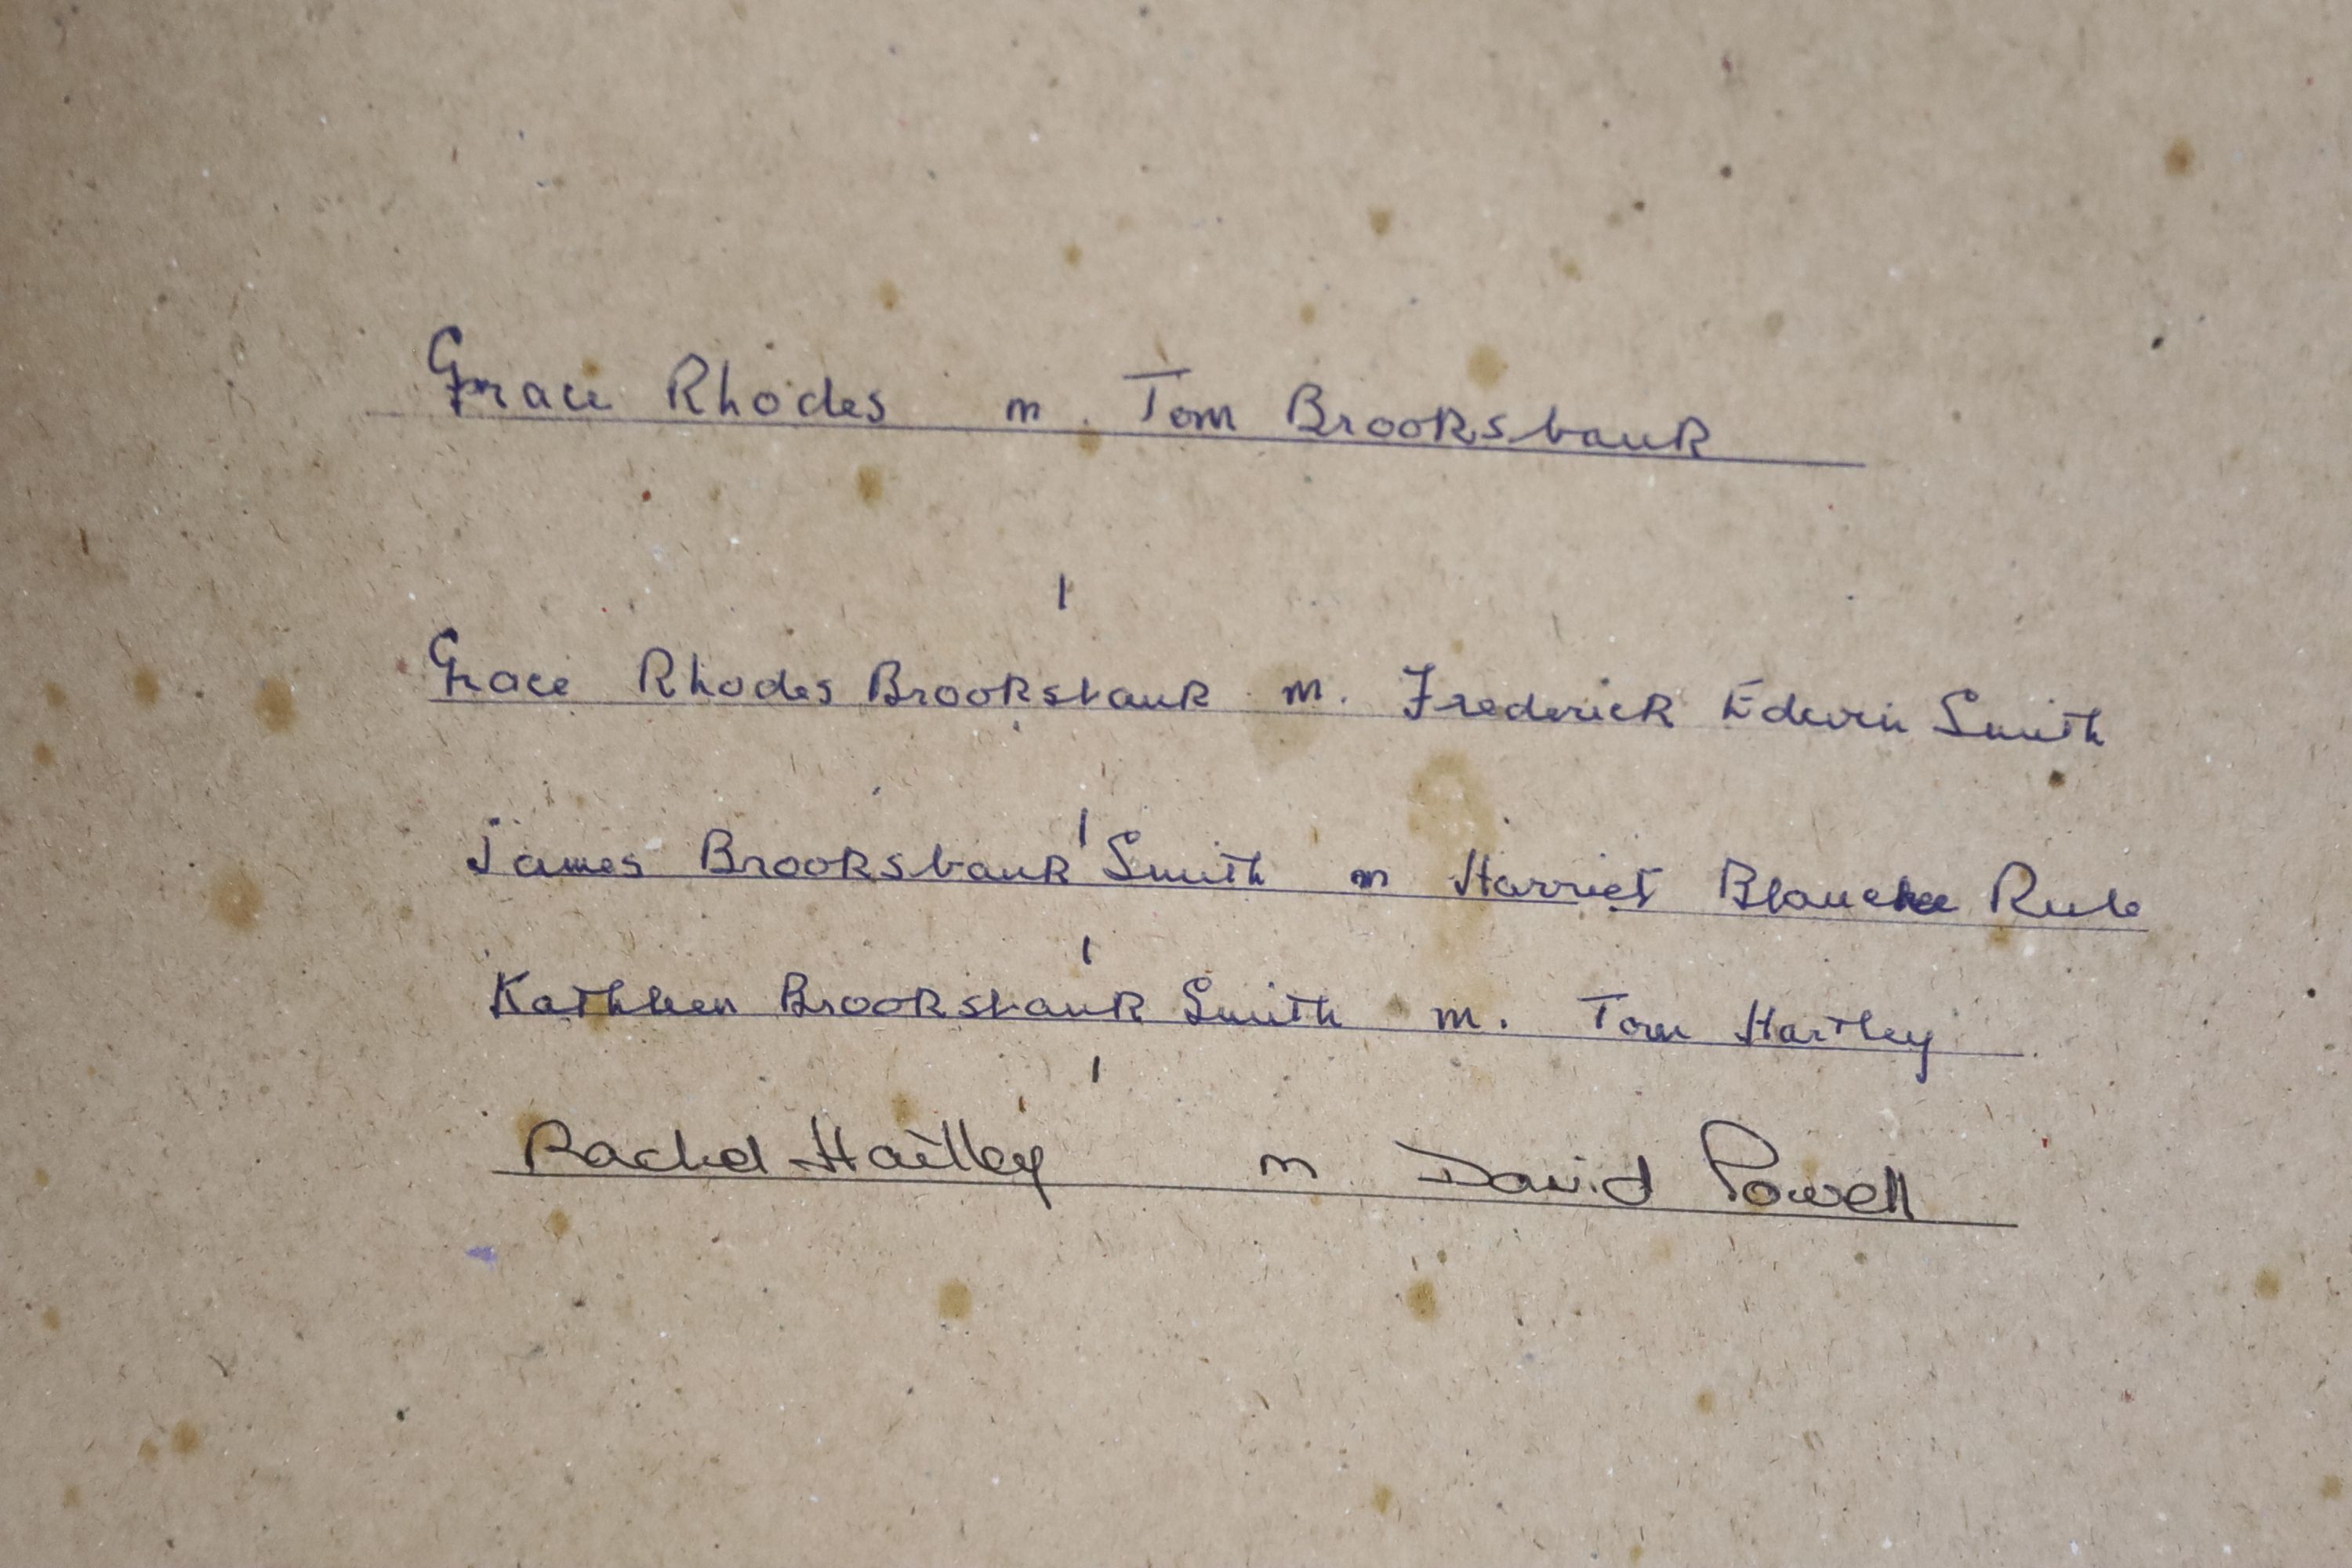 Grace Rhodes m. Tom Brooksbank
Grace Rhodes Brooksbank m. Frederick Edwin Smith
James Brooksbank Smith m Harriet Blanche Rule
Kathleen Brooksbank Smith m. Tom Hartley
Rachel Hartley m David Powell